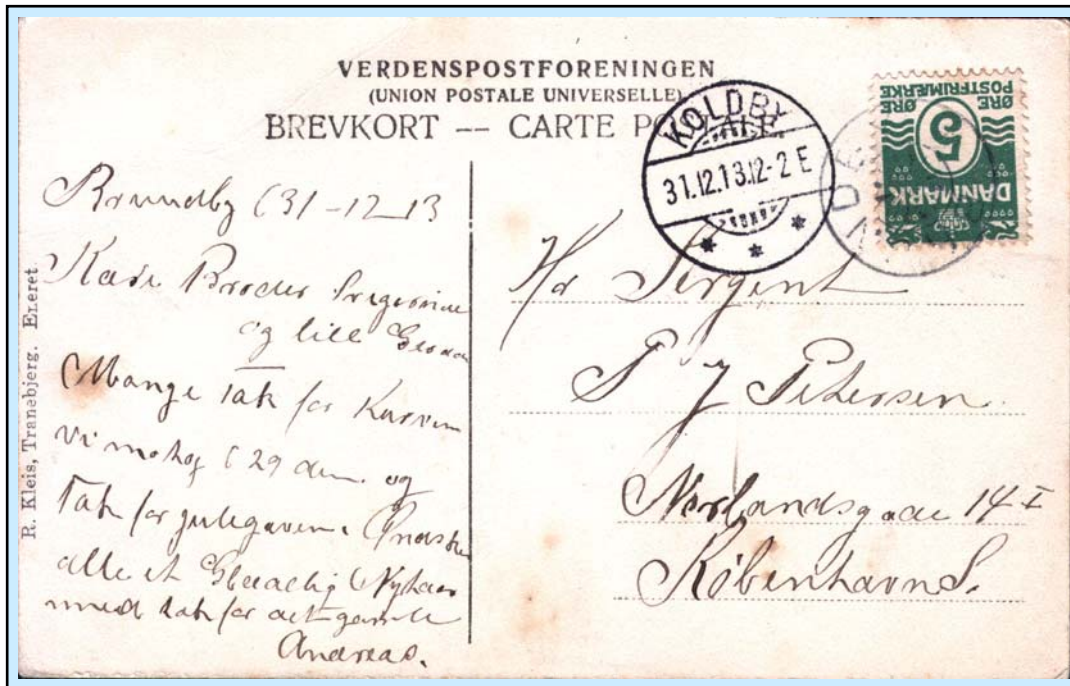 VERDENSPOSTFORENINGEN
(UNION POSTALE UNIVERSELLE)
BREVKORT -- CARTE POSTALE
KOLDBY
31.12.13.12-2 E
POSTFRIMÆRKE
ØRE ØRE
5
DANMARK
R. Kleis, Tranebjerg. Eneret
Brundby 31-12-13
Kære Broder
og lille
Mange Tak for Kurven
vi modtog d 29 den og
Tak for julegaven. Ønsker
alle et Glædelig Nytaar
med tak for det gamle
Andreas.
Hr Sergent
P J Petersen
Norlandsgade 14 I
København S.